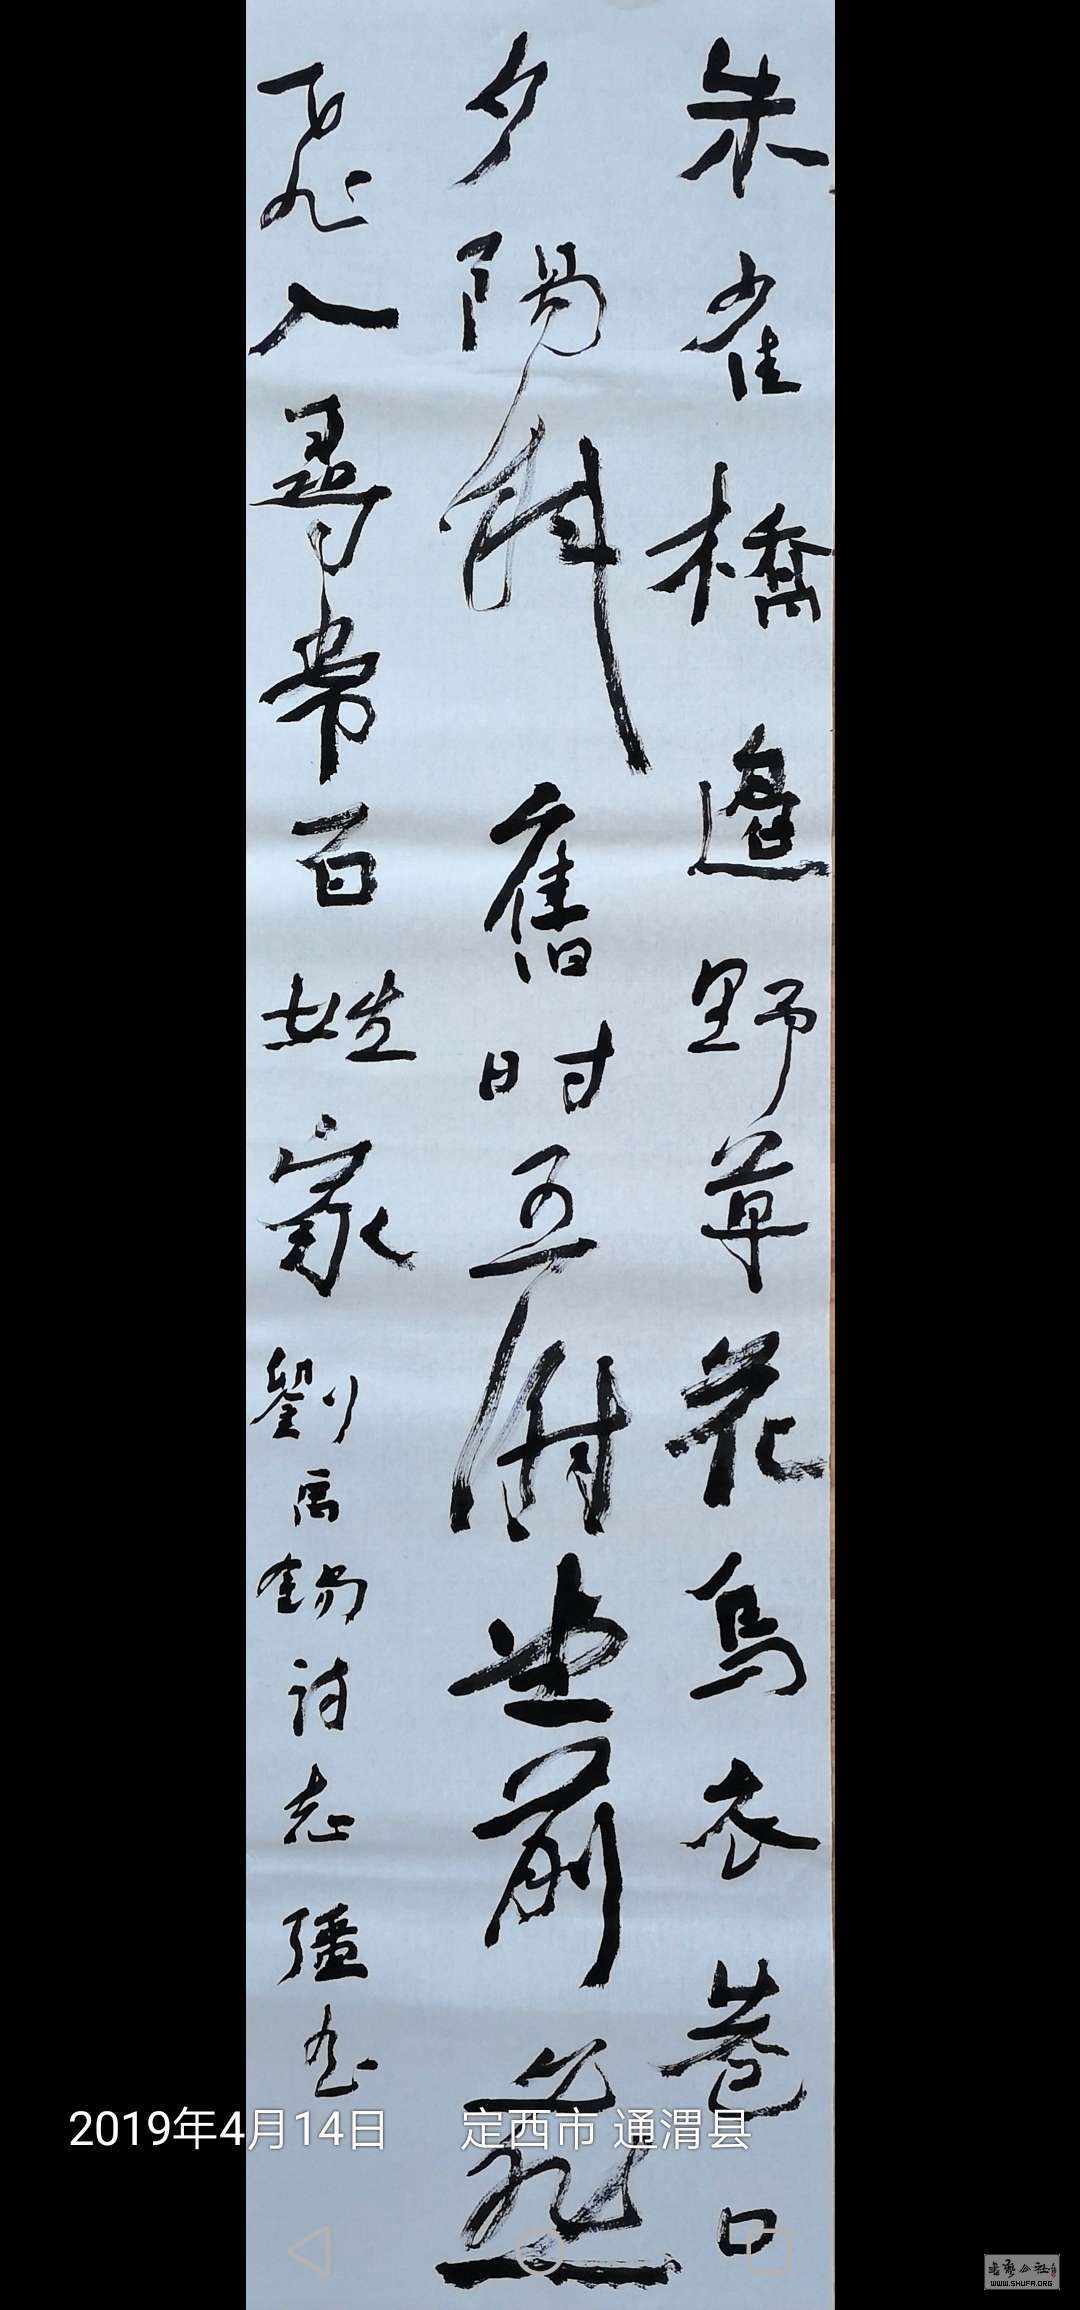 朱雀橋邊野草花烏衣巷口
夕陽斜舊时王謝堂前燕
飛入尋常百姓家 劉禹錫詩 志彊書
2019年4月14日 定西市 通渭县
WWW.SHUFA.ORG